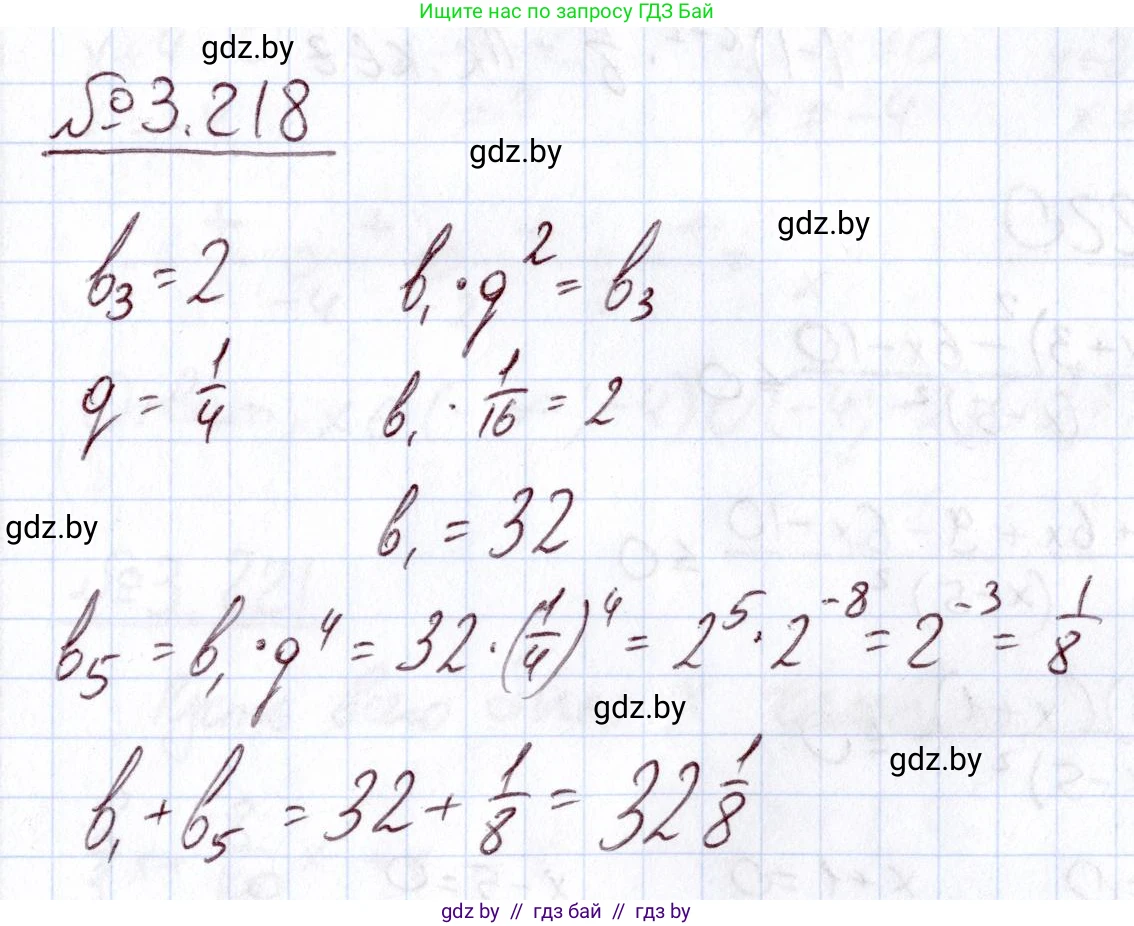 Ищите нас по запросу ГДЗ Бай
gdz.by
№3.218
gdz.by
gdz.by
b₃ = 2    b₁ · q² = b₃
q = 1/4    b₁ · 1/16 = 2
gdz.by
b₁ = 32
b₅ = b₁ · q⁴ = 32 · (1/4)⁴ = 2⁵ · 2⁻⁸ = 2⁻³ = 1/8
gdz.by
gdz.by
b₁ + b₅ = 32 + 1/8 = 32 1/8
gdz by // гдз бай // gdz by